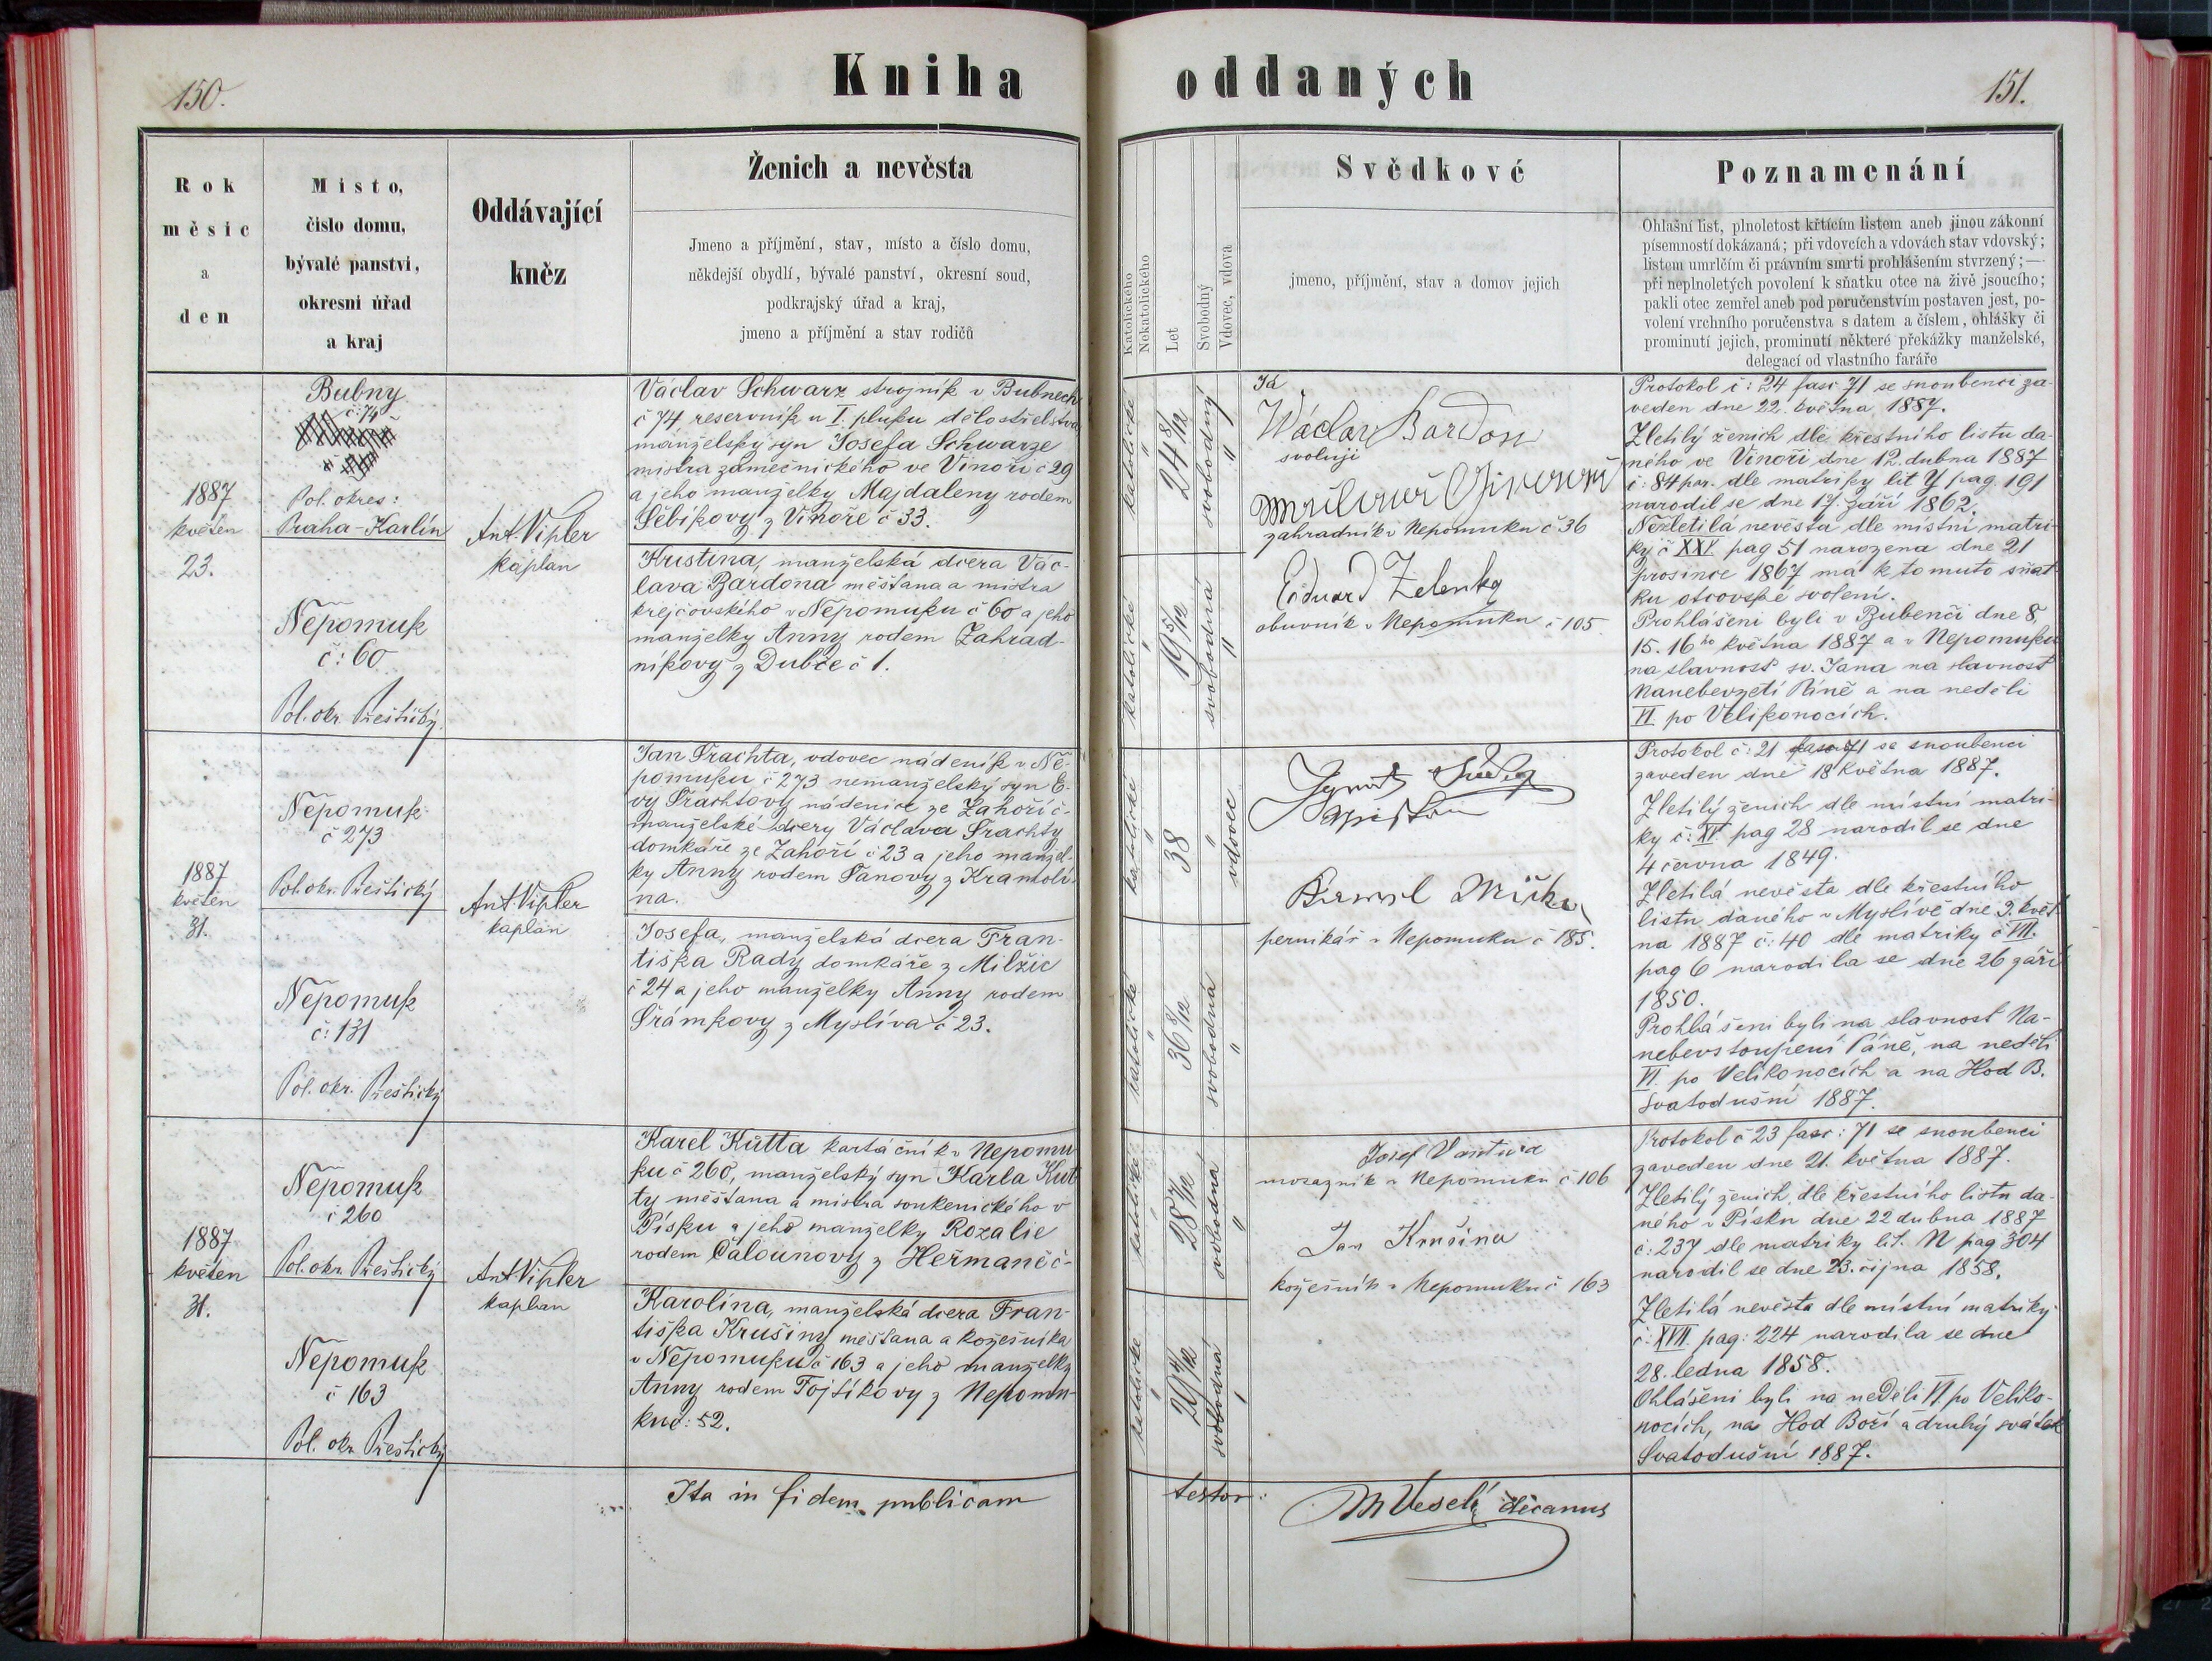 150.
Kniha oddaných
151.
Rok
měsíc
a
den
Místo,
číslo domu,
bývalé panství,
okresní úřad
a kraj
Oddávající
kněz
Ženich a nevěsta
Jmeno a příjmění, stav, místo a číslo domu,
někdejší obydlí, bývalé panství, okresní soud,
podkrajský úřad a kraj,
jmeno a příjmění a stav rodičů
Katolického
Nekatolického
Let
Svobodný
Vdovec, vdova
Svědkové
jmeno, příjmění, stav a domov jejich
Poznamenání
Ohlašní list, plnoletost křtícím listem aneb jinou zákonní
písemností dokázaná; při vdovcích a vdovách stav vdovský;
listem umrlčím či právním smrti prohlášením stvrzený;—
při neplnoletých povolení k sňatku otce na živě jsoucího;
pakli otec zemřel aneb pod poručenstvím postaven jest, po-
volení vrchního poručenstva s datem a číslem, ohlášky či
prominutí jejich, prominutí některé překážky manželské,
delegací od vlastního faráře
1887
květen
23.
Bubny
č: 74
Pol. okres:
Praha-Karlín
Nepomuk
č: 60
Pol. okr. Přeštický
Ant. Vipler
kaplan
Václav Schwarz strojník v Bubnech
č 74, reservník u I. pluku dělostřelstva
manželský syn Josefa Schwarze
mistra zámečnického ve Vinoři č 29
a jeho manželky Majdaleny rodem
Šebíkovy z Vinoře č 33.
Kristina, manželská dcera Vác-
lava Bardona měšťana a mistra
krejčovského v Nepomuku č 60 a jeho
manželky Anny rodem Zahrad-
níkový z Dubče č 1.
katolické
"
24 8/12
svobodný
"
katolické
"
19 5/12
svobodná
"
Já
Wáclav Bardon
svoluji
zahradník v Nepomuku č 36
Eduard Zelenka
obuvník v Nepomuku č 105.
Protokol č: 24 fasc 71 se snoubenci za-
veden dne 22. května 1887.
Zletilý ženich dle křestního listu da-
ného ve Vinoři dne 12. dubna 1887
č: 84 par. dle matriky lit Y pag. 191
narodil se dne 17. září 1862.
Nezletilá nevěsta dle místní matri-
ky č XXI. pag 51 narozena dne 21
prosince 1867 má k tomuto sňat-
ku otcovské svolení.
Prohlášeni byli v Bubenči dne 8,
15. 16ho května 1887 a v Nepomuku
na slavnost sv. Jana na slavnost
Nanebevzetí Páně a na neděli
VI. po Velikonocích.
1887
květen
31.
Nepomuk
č 273
Pol. okr. Přeštický
Nepomuk
č: 131
Pol. okr. Přeštický
Ant. Vipler
kaplan
Jan Prachta, vdovec nádeník v Ne-
pomuku č 273 nemanželský syn E-
vy Prachtovy nádenice ze Zahoří č-
manželské dcery Václava Prachty
domkáře ze Zahoří č 23 a jeho manžel-
ky Anny rodem Panovy z Kramolí-
na.
Josefa, manželská dcera Fran-
tiška Rady domkáře z Milžic
č 24 a jeho manželky Anny rodem
Šrámkovy z Myslíva č 23.
katolické
"
38
"
vdovec
katolické
"
36 8/12
svobodná
"
perníkář v Nepomuku č 185.
Protokol č: 21 fasc 71 se snoubenci
zaveden dne 18 května 1887.
Zletilý ženich dle místní matri-
ky č: XV. pag 28 narodil se dne
4 června 1849.
Zletilá nevěsta dle křestního
listu daného v Myslívě dne 9. květ-
na 1887 č: 40 dle matriky č VII.
pag 6 narodila se dne 26 září
1850.
Prohlášeni byli na slavnost Na-
nebevstoupení Páně, na neděli
VI. po Velikonocích a na Hod B.
Svatodušní 1887.
1887
květen
31.
Nepomuk
č 260
Pol. okr. Přeštický
Nepomuk
č 163
Pol. okr. Přeštický
Ant. Vipler
kaplan
Karel Kutta kartáčník v Nepomu-
ku č 260, manželský syn Karla Kut-
ty měšťana a mistra soukenického v
Písku a jeho manželky Rozalie
rodem Čalounovy z Heřmaně č-
Karolína, manželská dcera Fran-
tiška Krušiny měšťana a kožešníka
v Nepomuku č 163 a jeho manželky
Anny rodem Fojtíkovy z Nepomu-
ku č: 52.
katolické
"
28 7/12
svobodná
"
katolické
20 4/12
svobodná
Josef Vantura
mosazník v Nepomuku č 106
Jan Krušina
kožešník v Nepomuku č 163
Protokol č 23 fasc: 71 se snoubenci
zaveden dne 21. května 1887.
Zletilý ženich dle křestního listu da-
ného v Písku dne 22 dubna 1887
č: 237 dle matriky lit. N pag 304
narodil se dne 23. října 1858.
Zletilá nevěsta dle místní matriky
č: XVII. pag: 224 narodila se dne
28. ledna 1858.
Ohlášeni byli na neděli VI. po Veliko-
nocích, na Hod Boží a druhý svátek
Svatodušní 1887.
Ita in fidem publicam
testor:
M Veselý decanus